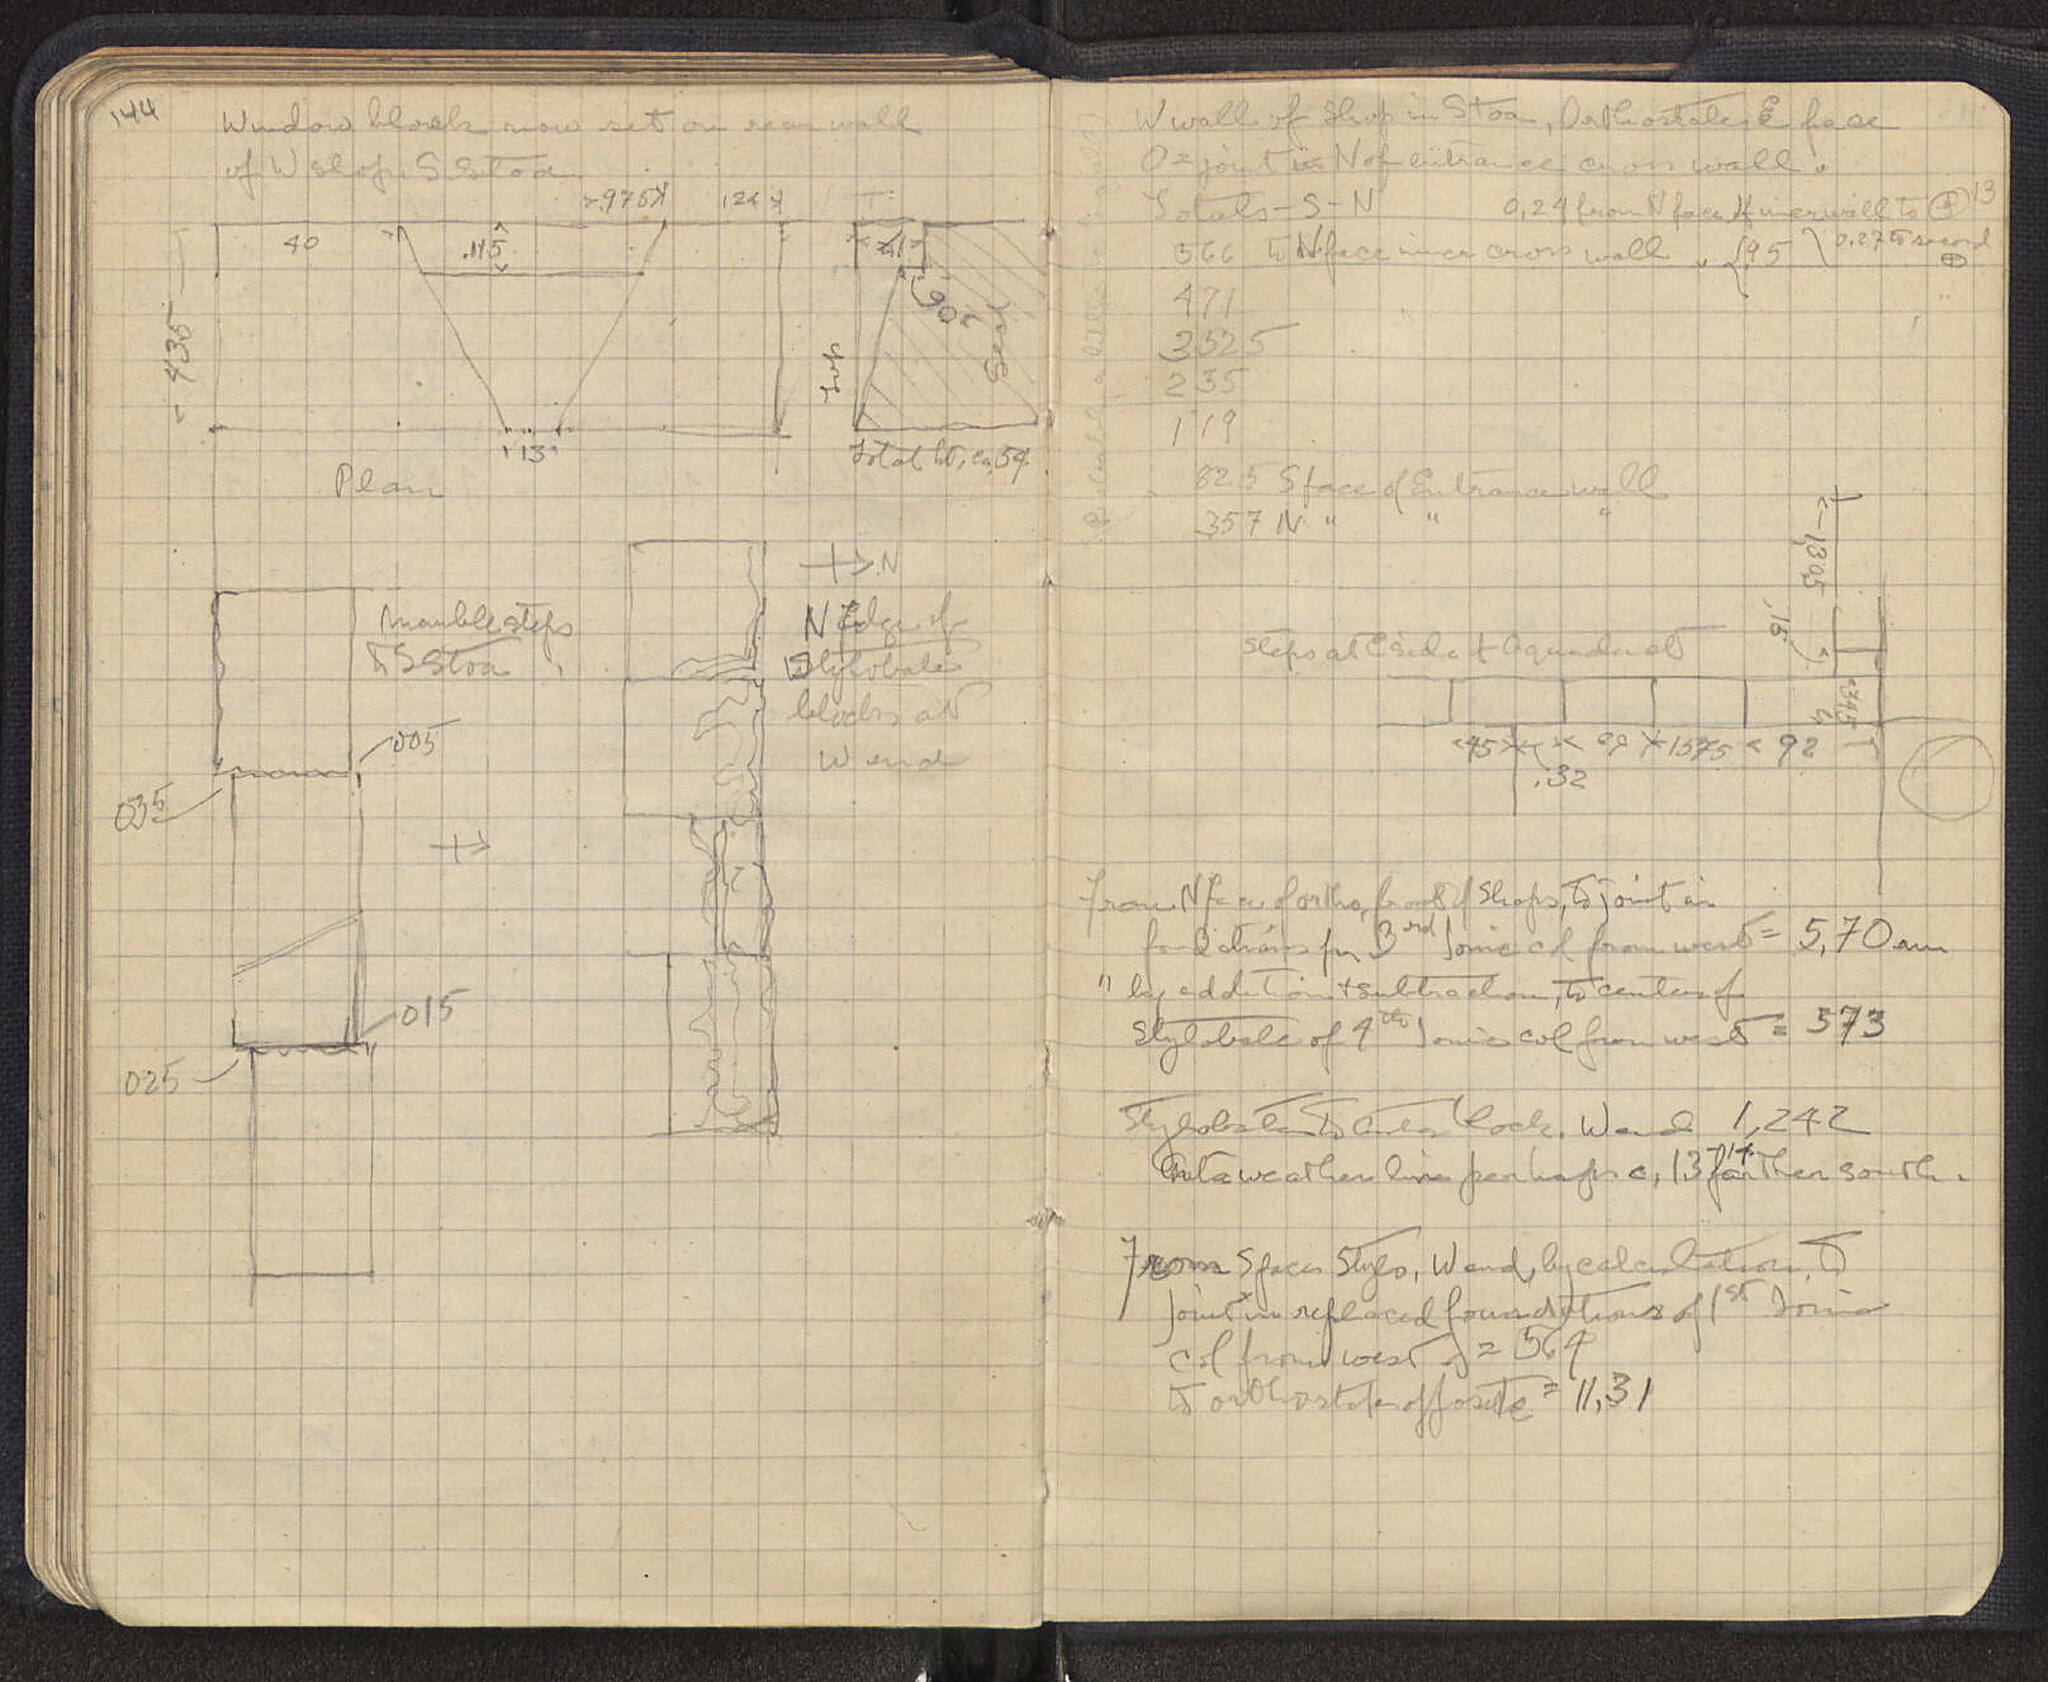 144
Window blocks now set on rear wall
of W shop S Stoa
.975
.40
.115
.435
.13
Plan
Top
90
Sect
Total ht. ca .54
Marble steps
to S Stoa
005
035
015
025
N
N Edge of
Stylobate
blocks at
W end
W wall of Shop in Stoa, Orthostates E face
O = joint N of entrance cross wall.
Totals - S - N
0,24 from N face inner wall to 13
566 to N face inner cross wall
95
0.27 to second
471
3525
235
119
825 S face of Entrance wall
357 N " " "
1,305
.15
Steps at E side of Aqueduct
.345
45
99
1575
92
.32
From N face of ortho, front of Shops, to joint in
foundations for 3rd Ionic col from west = 5,70
" by addition & subtraction, to center of
Stylobate of 4th Ionic col from west = 573
Stylobate to W end 1,242
weather line perhaps c, 13 farther south.
From S face Stylo, W end, by calculation, to
joint in replaced foundations of 1st Ionic
col from west = 564
to orthostates opposite = 11,31